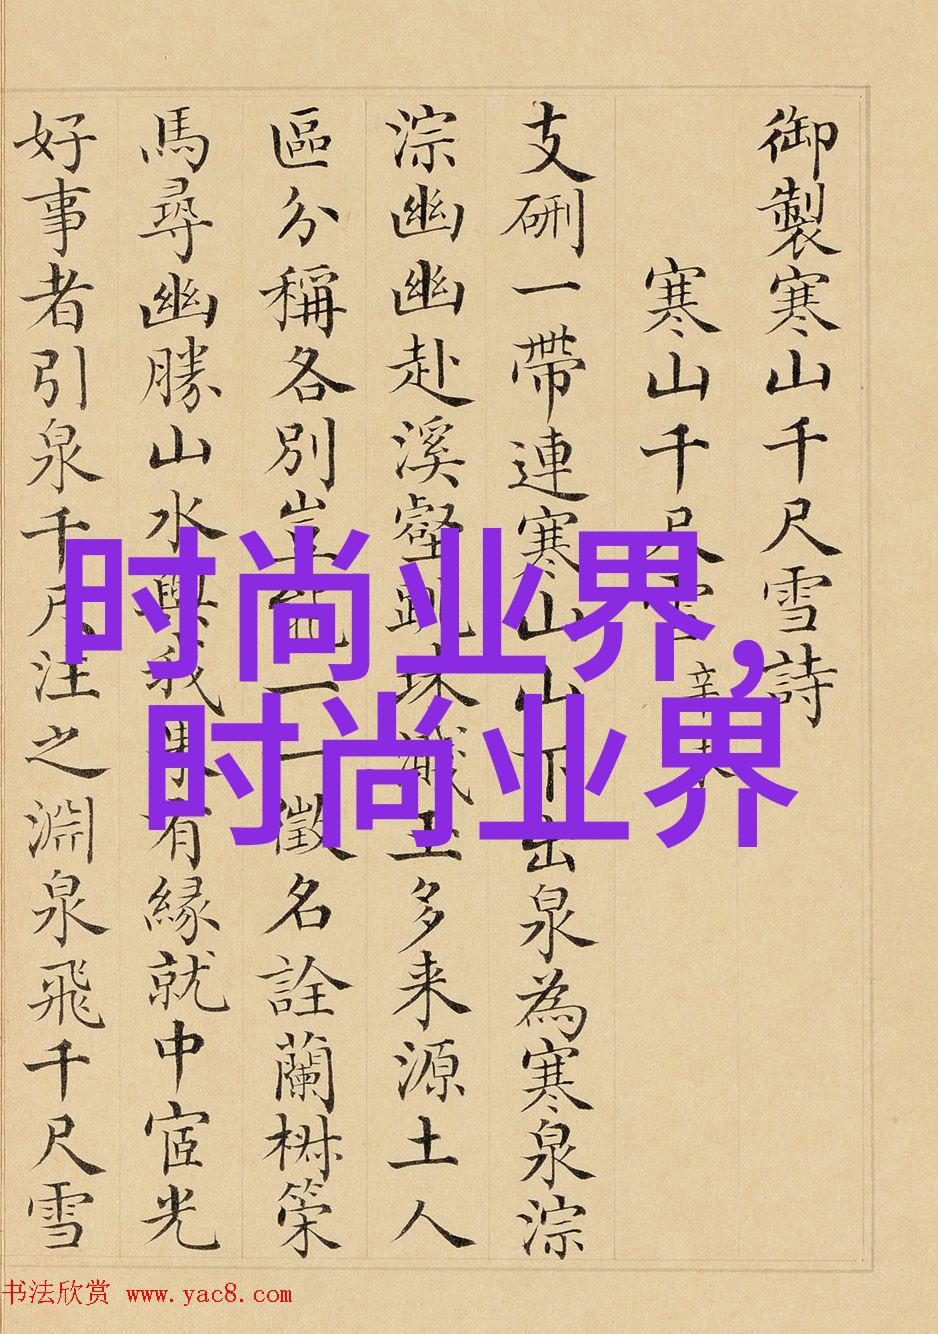 御製寒山千尺雪詩
寒山千尺雪 辛未
支硎一帶連寒山山下出泉為寒泉淙
淙幽幽赴溪壑跳珠濺玉多来源土人
區分稱各別豈能一一徵名詮蘭樹策
馬尋幽勝山水與我果有緣就中宧光
好事者引泉千尺注之淵泉飛千尺雪
时尚业界，
时尚业界
书法欣赏 www.yac8.com